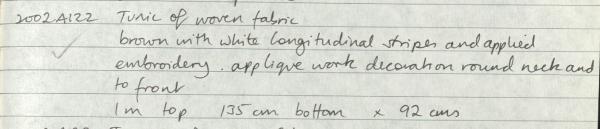 2002A122 Tunic of woven fabric
brown with white longitudinal stripes and applied
embroidery. applique work decoration round neck and
to front
1m top 135 cm bottom x 92 cms